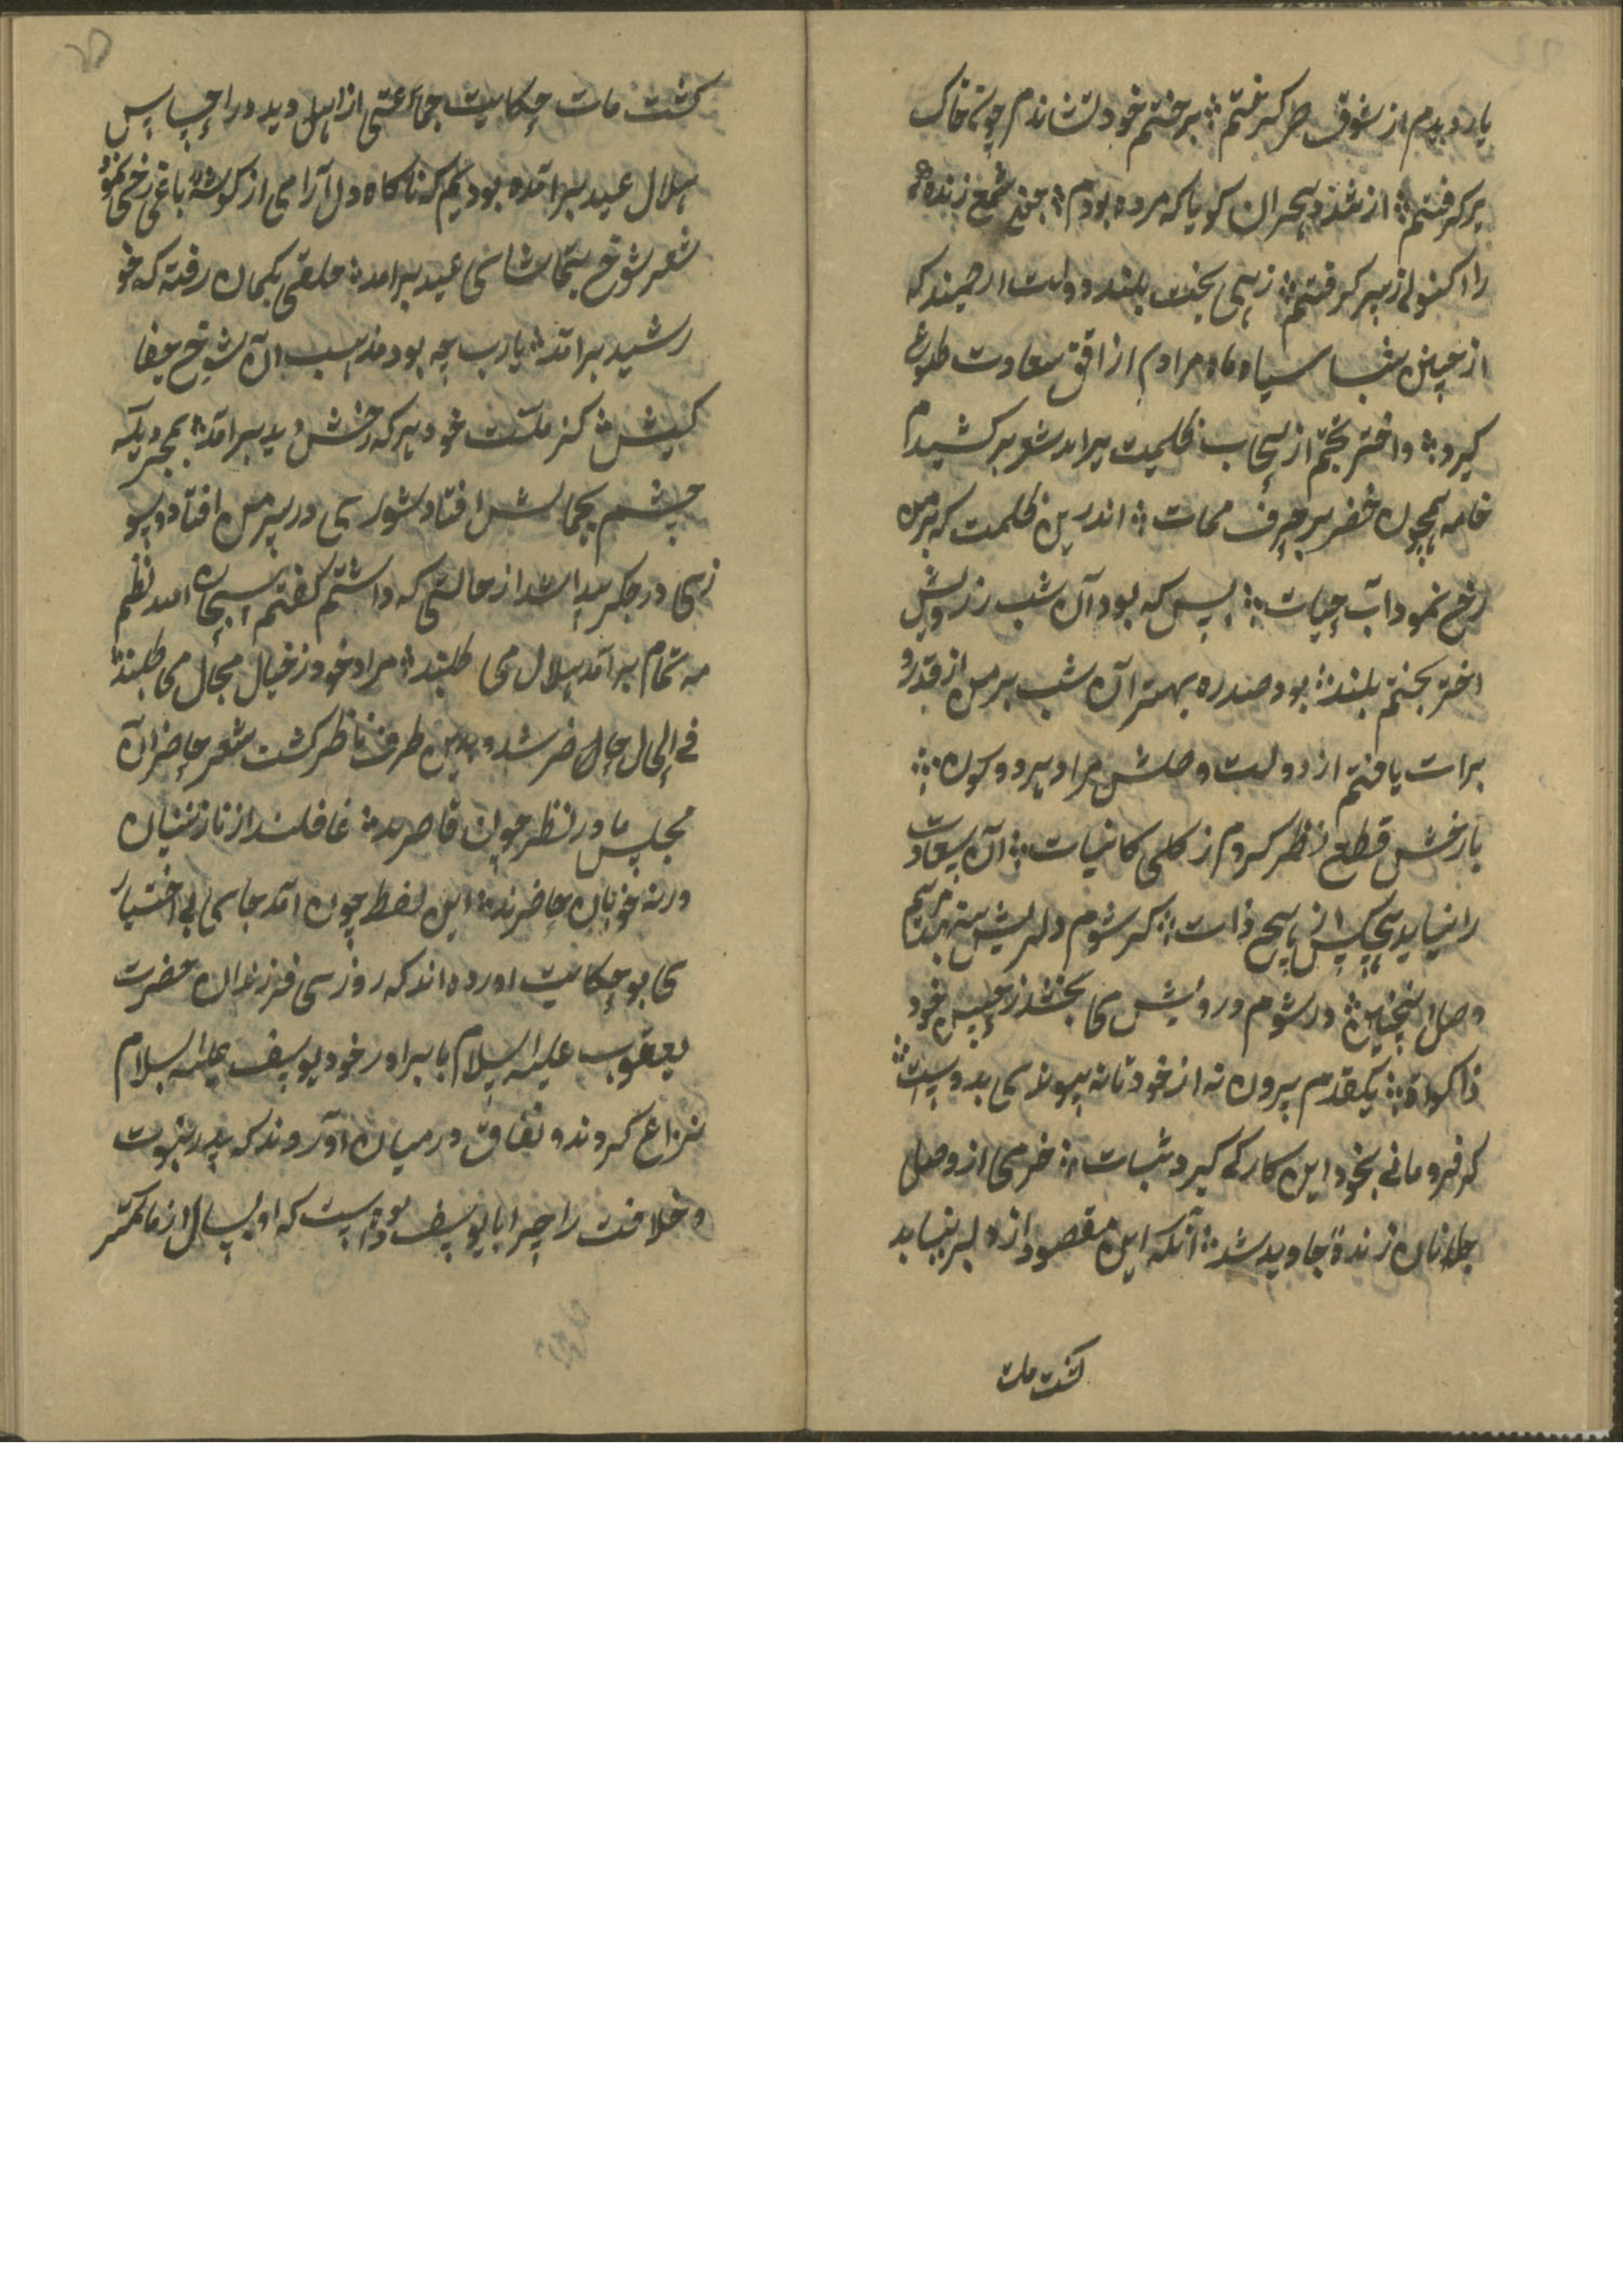 یار دیدم از شوق صر کرفتم ؞ برختم خود نشاندم چون خاک
برکرفتم ؞ از شد هجران کویا که مرده بودم ؞ شمع زنده
را اکنون ز سر کرفتم ؞ زهی بخت بلند و دولت ارجمند که
از چنین شب سیاه ماه مرادم از افق سعادت طلوع
کیرد ؞ و اختر بختم از سحاب ظلمت براید شعر برکشیدم
خامه همچون خضر بر حرف ممات ؞ اندرین ظلمت که بر من
رخ نمود آب حیات ؞ بس که بود آن شب ز رویش
اختر بختم بلند ؞ بود صد ره بهتر آن شب بر من از قدر و
برات یافتم از دولت وصلش مراد هر دو کون ؞
با رخش قطع نظر کردم ز کلی کاینات ؞ آن سعادت
را نیابد هیچکس از هیچ ذات ؞ کر شوم دلریش
وصل اینچنین ؞ ور شوم درویش می بخشد ز حسن خود
ذکوة ؞ یکقدم بیرون نه از خود تا نه پیوندی بدوست ؞
کر فرو مانی بخود این کار کی کیرد ثبات ؞ خرمی از وصل
جانان زنده جاوید شد ؞ آنکه این مقصود از دلبر نیابد
کشت مات
کشت مات حکایت جماعتی از اهل دید در احساس
هلال عید برآمده بودیم که ناکاه دل آرامی از کوشه باغی رخی نمود
شعر شوخ بتماشای عید برامد ؞ خلقی بکمان رفته که خو
رشید برآمد ؞ یا رب چه بود مذهب آن شوخ جفا
کیش ؞ کز ملت خود هر که رخش دید برآمد ؞ بمجرد یکه
چشم بجمالش افتاد شوری در سر من افتاد و سو
زی در جکر پیدا شد از حالتی که داشتم کفتم سبحان الله نظم
مه تمام برآمد هلال می طلبند ؞ مراد خود ز خیال محال می طلبند
فی الحال حال حاضر شد و بدین طرف ناظر کشت شعر حاضران
مجلس ما در نظر چون قاصرند ؞ غافلند از نازنینان
ورنه خوبان حاضرند ؞ این لفظ چون آمد جای بی اختیار
می بو حکایت اورده اند که روزی فرزندان حضرت
یعقوب علیه السلام با برادر خود یوسف علیه السلام
نزاع کردند و نفاق در میان آوردند که پدر نبوت
و خلافت را چرا با یوسف داده است که او بسال از ما کمتر